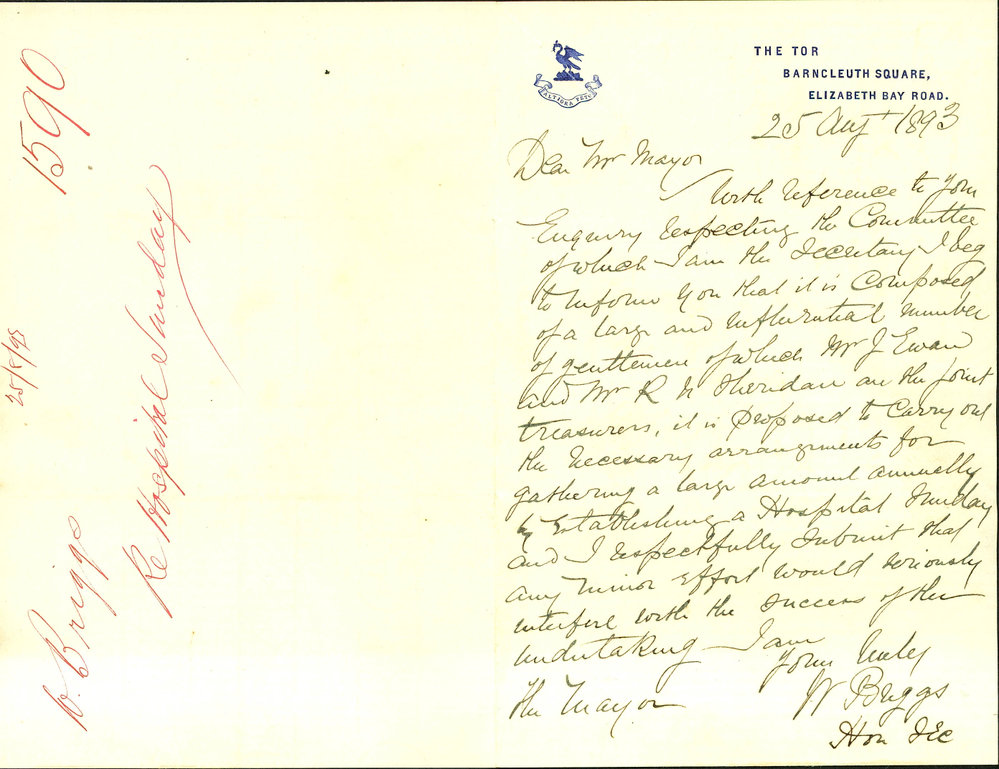 1590
25/8/93
W. Briggs
Re Hospital Sunday
ALTIORA PETO
THE TOR
BARNCLEUTH SQUARE,
ELIZABETH BAY ROAD.
25 Augt 1893
Dear Mr Mayor
With reference to your
Enquiry respecting the Committee
of which I am the Secretary I beg
to inform you that it is Composed
of a large and influential number
of gentlemen of which Mr J Ewan
and Mr R N Sheridan are the joint
treasurers, it is proposed to carry out
the necessary arrangements for
gathering a large amount annually
by Establishing a Hospital Sunday
and I respectfully submit that
any minor effort would seriously
interfere with the success of the
undertaking I am
Yours truly
The Mayor
W Briggs
Hon Sec